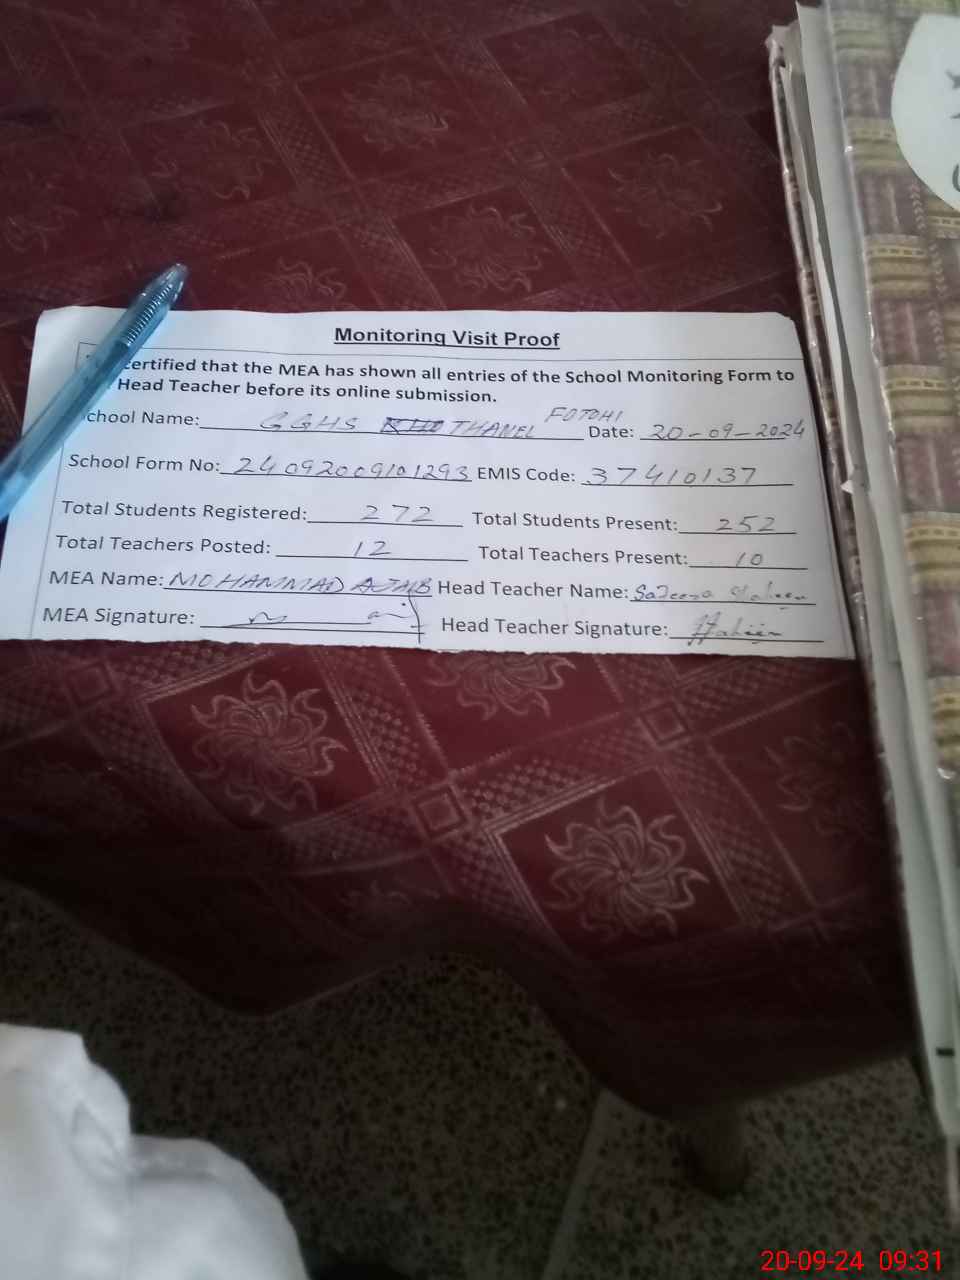 Monitoring Visit Proof
certified that the MEA has shown all entries of the School Monitoring Form to
Head Teacher before its online submission.
School Name: GGHS THANEL FOTOHI Date: 20-09-2024
School Form No: 24092009101293 EMIS Code: 37410137
Total Students Registered: 272 Total Students Present: 252
Total Teachers Posted: 12 Total Teachers Present: 10
MEA Name: MOHAMMAD AJAIB Head Teacher Name:
MEA Signature: Head Teacher Signature:
20-09-24 09:31